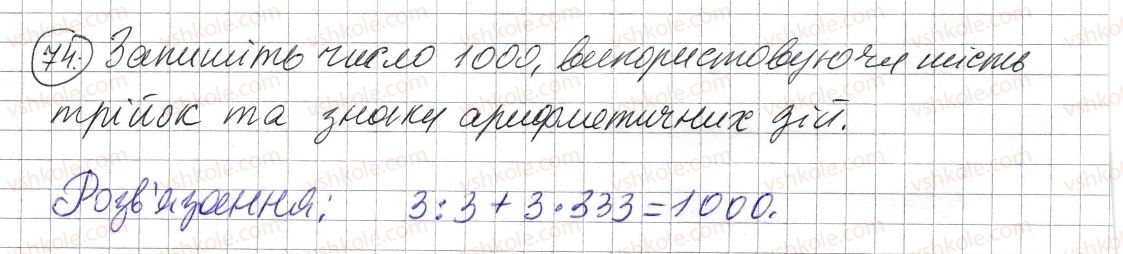 74. Запишіть число 1000, використовуючи шість
трійок та знаки арифметичних дій.
Розв'язання: 3:3+3·333=1000.